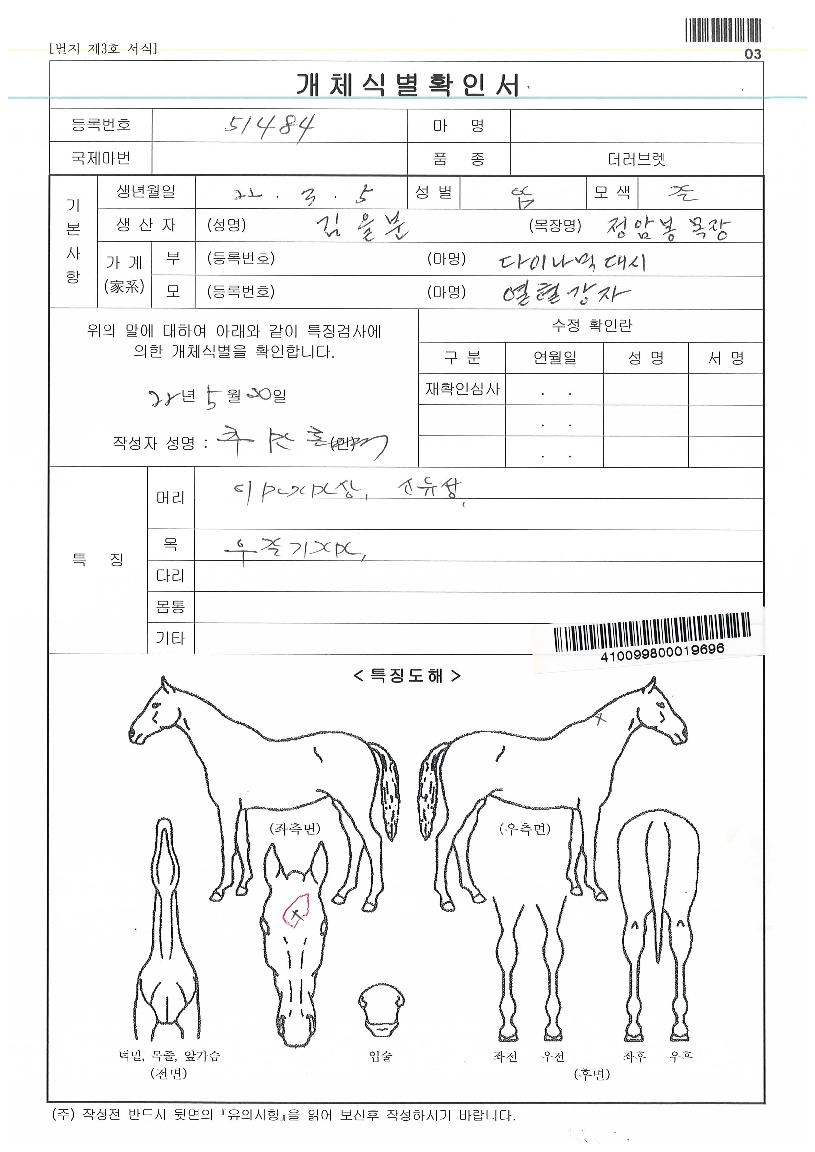 [별지 제3호 서식]
03
개체식별확인서
등록번호 51484 마 명
국제마번 품 종 더러브렛
기본사항
생년월일 22 . 3 . 5 성 별 암 모 색
생 산 자 (성명) 김을분 (목장명) 정암봉목장
가 계 (家系)
부 (등록번호) (마명) 다이나믹대시
모 (등록번호) (마명) 열혈강자
위의 말에 대하여 아래와 같이 특징검사에
의한 개체식별을 확인합니다.
22년 5월 20일
작성자 성명 : (인)
수정 확인란
구 분 연월일 성 명 서 명
재확인심사 . .
. .
. .
특 징
머리
목
다리
몸통
기타
410099800019696
< 특징도해 >
(좌측면) (우측면)
턱밑, 목줄, 앞가슴
(전면)
입술
좌전 우전 좌후 우후
(후면)
(주) 작성전 반드시 뒷면의 『유의사항』을 읽어 보신후 작성하시기 바랍니다.